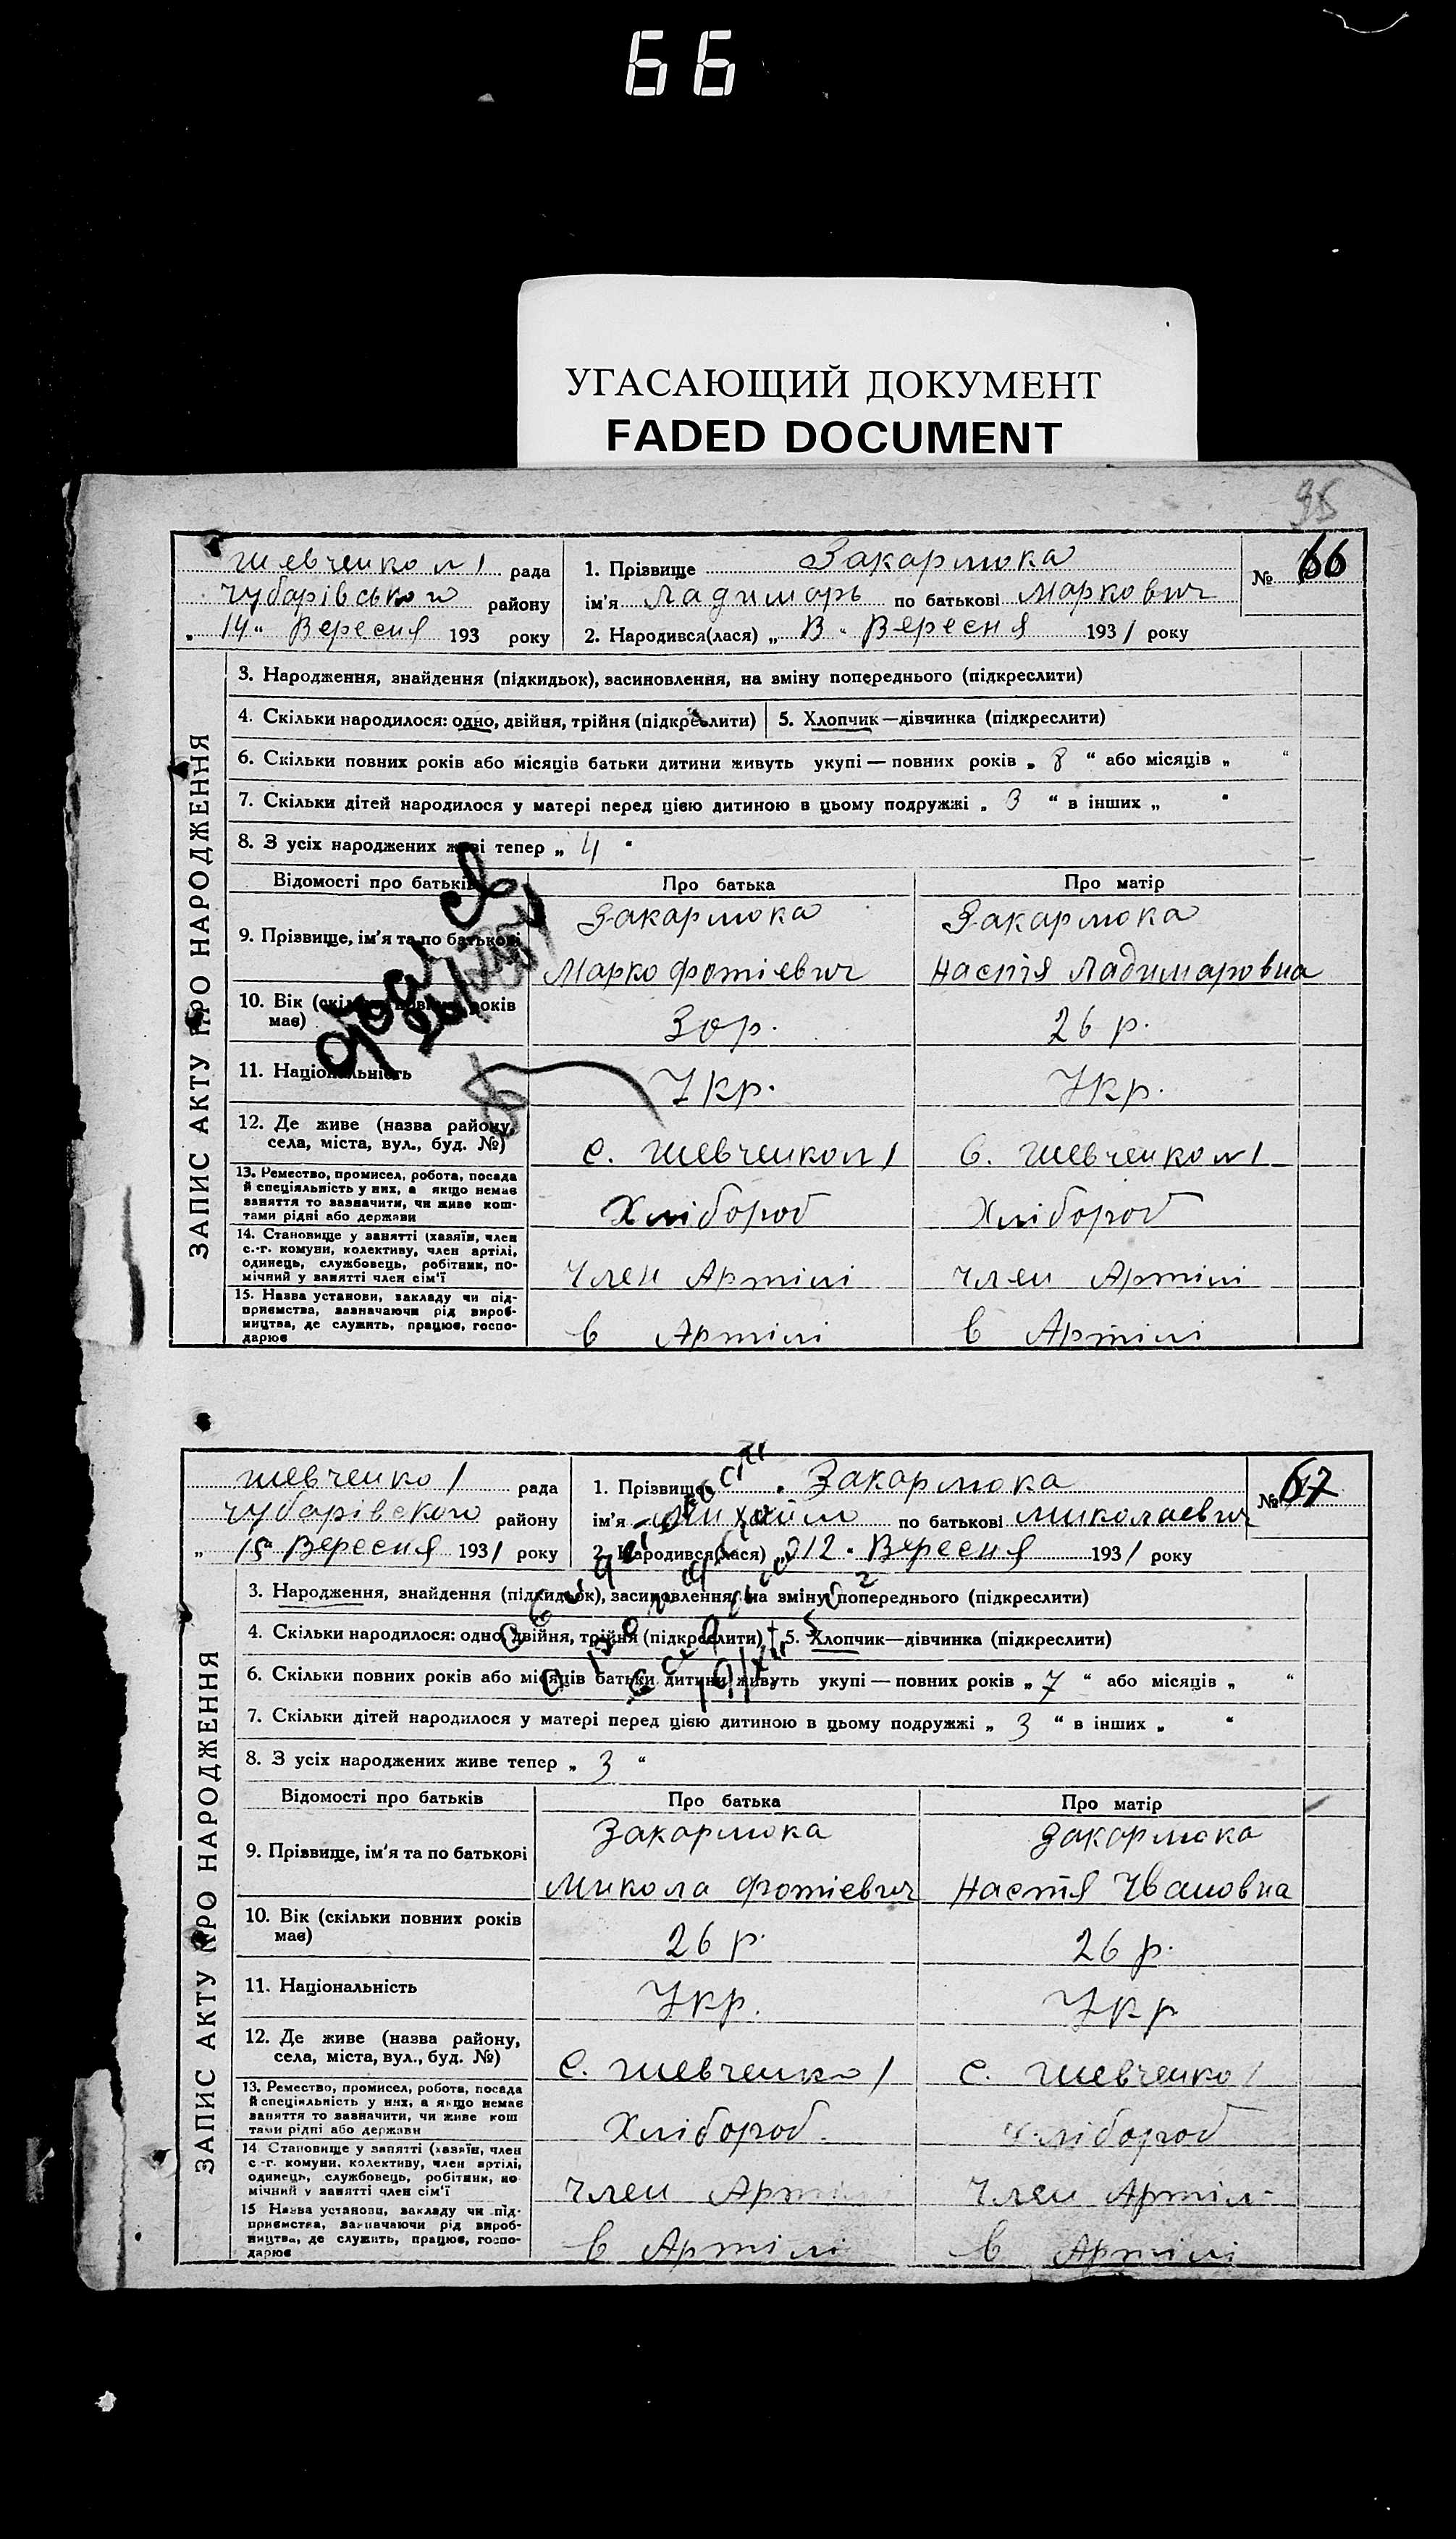 66
УГАСАЮЩИЙ ДОКУМЕНТ
FADED DOCUMENT
95
ЗАПИС АКТУ ПРО НАРОДЖЕННЯ
Шевченко №1 рада
Чубарівського району
„14“ Вересня 193 року
1. Прізвище Закармока
ім'я Ладимарь по батькові Маркович
2. Народився(лася) „13“ Вересня 1931 року
№ 66
3. Народження, знайдення (підкидьок), засиновлення, на зміну попереднього (підкреслити)
4. Скільки народилося: одно, двійня, трійня (підкреслити) 5. Хлопчик—дівчинка (підкреслити)
6. Скільки повних років або місяців батьки дитини живуть укупі — повних років „8“ або місяців „ “
7. Скільки дітей народилося у матері перед цією дитиною в цьому подружжі „3“ в інших „ “
8. З усіх народжених живі тепер „4“
Відомості про батьків Про батька Про матір
9. Прізвище, ім'я та по батькові Закармока Закармока
Марко Фотіевич Настя Ладимаровна
10. Вік (скільки повних років має) 30 р. 26 р.
11. Національність Укр. Укр.
12. Де живе (назва району,
села, міста, вул., буд. №) с. Шевченко №1 с. Шевченко №1
13. Ремество, промисел, робота, посада
й спеціяльність у них, а якщо немає
заняття то зазначити, чи живе кош-
тами рідні або держави Хлібороб Хлібороб
14. Становище у занятті (хазяїн, член
с.-г. комуни, колективу, член артілі,
одинець, службовець, робітник, по-
мічний у занятті член сім'ї Член Артілі Член Артілі
15. Назва установи, закладу чи під-
приємства, зазначаючи рід вироб-
ництва, де служить, працює, госпо-
дарює в Артілі в Артілі
ЗАПИС АКТУ ПРО НАРОДЖЕННЯ
Шевченко 1 рада
Чубарівского району
„15“ Вересня 1931 року
1. Прізвище Закармока
ім'я Михайло по батькові Миколаевич
2. Народився(лася) „12“ Вересня 1931 року
№ 67
3. Народження, знайдення (підкидьок), засиновлення, на зміну попереднього (підкреслити)
4. Скільки народилося: одно, двійня, трійня (підкреслити) 5. Хлопчик—дівчинка (підкреслити)
6. Скільки повних років або місяців батьки дитини живуть укупі — повних років „7“ або місяців „ “
7. Скільки дітей народилося у матері перед цією дитиною в цьому подружжі „3“ в інших „ “
8. З усіх народжених живе тепер „3“
Відомості про батьків Про батька Про матір
9. Прізвище, ім'я та по батькові Закармока Закармока
Микола Фотіевич Настя Ивановна
10. Вік (скільки повних років
має) 26 р. 26 р.
11. Національність Укр. Укр
12. Де живе (назва району,
села, міста, вул., буд. №) с. Шевченко 1 с. Шевченко 1
13. Ремество, промисел, робота, посада
й спеціяльність у них, а якщо немає
заняття то зазначити, чи живе кош
тами рідні або держави Хлібороб. Хлібороб
14. Становище у занятті (хазяїн, член
с.-г. комуни, колективу, член артілі,
одинець, службовець, робітник, по
мічний у занятті член сім'ї Член Арті Член Артіл
15 Назва установи, закладу чи під-
приємства, зазначаючи рід вироб-
ництва, де служить, працює, госпо-
дарює в Артілі в Артілі